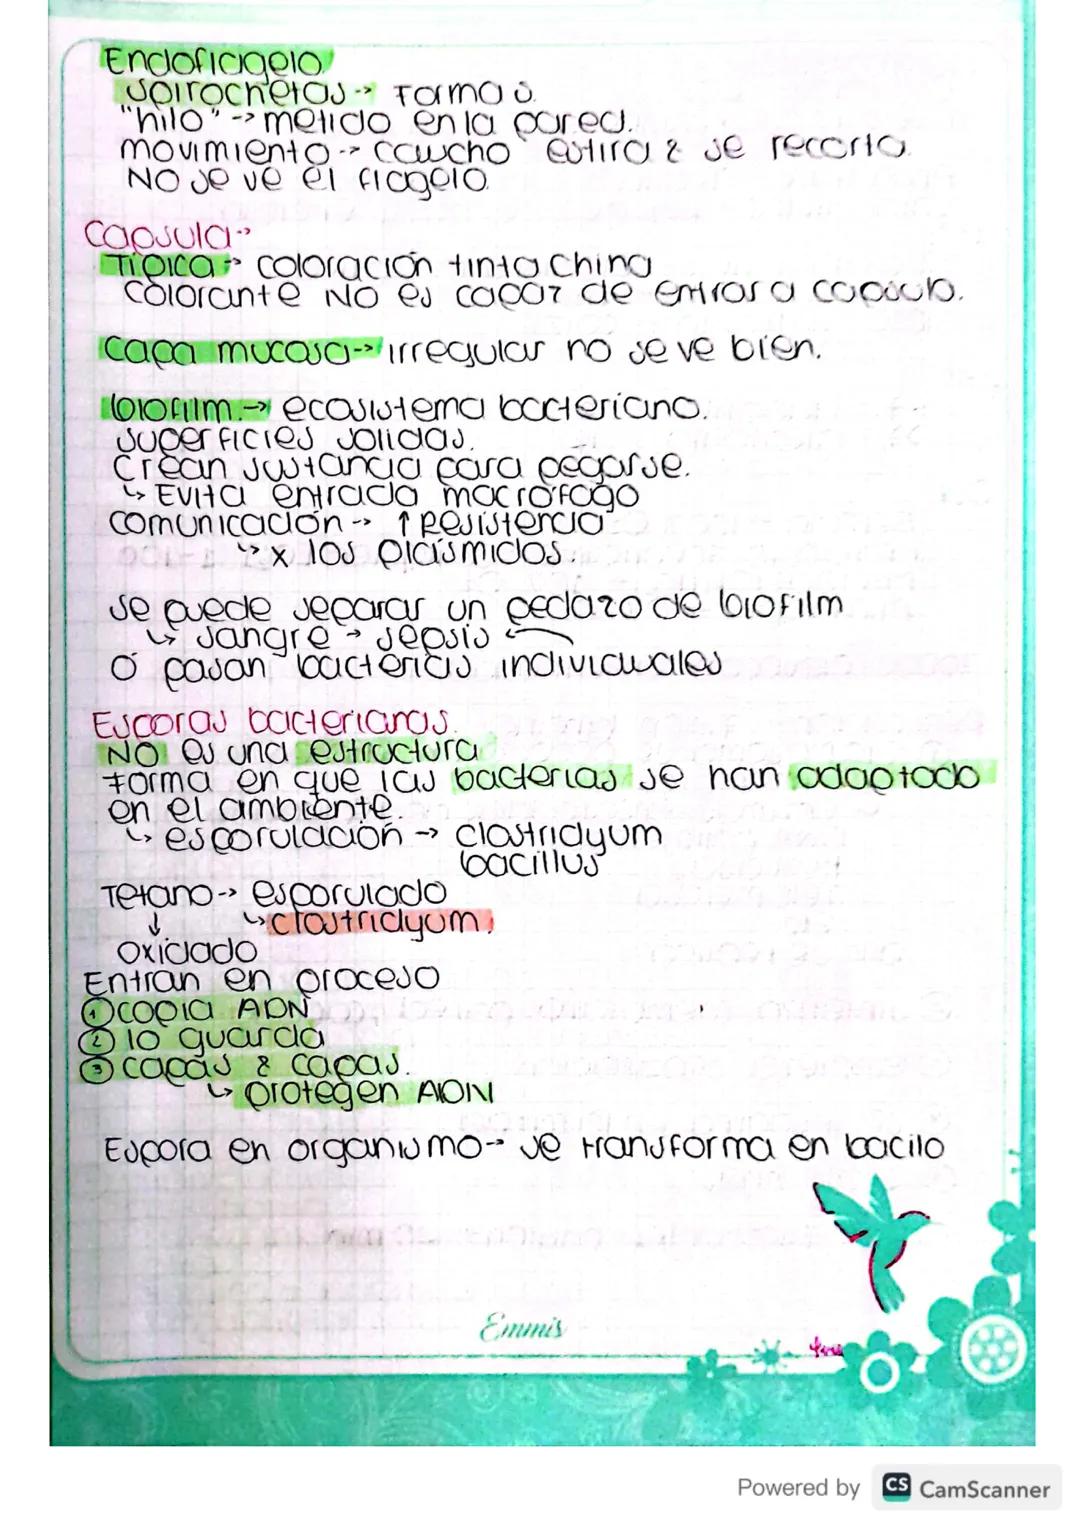 Endoflagelo
Spirochetas → Forma S.
"hilo" → metido en la pared.
movimiento → caucho estira & se recorta.
NO se ve el flagelo.
Capsula →
Típica → coloración tinta china
colorante NO es capaz de entrar a capsula.
Capa mucosa → irregular no se ve bien.
biofilm. → ecosistema bacteriano.
superficies solidas.
Crean sustancia para pegarse.
↳ Evita entrada macrófago
comunicación → ↑ Resistencia
↳ x los plásmidos.
Se puede separar un pedazo de biofilm
↳ sangre → sepsis ←
Ó pasan bacterias individuales
Esporas bacterianas.
NO es una estructura
Forma en que las bacterias se han adaptado
en el ambiente.
↳ esporulación → clostridyum
bacillus
Tetano → esporulado
↓ ↳ clostridyum.
oxidado
Entran en proceso
① copia ADN
② lo guarda
③ capas & capas.
↳ protegen ADN
Espora en organismo → se transforma en bacilo
Emmis
Powered by CS CamScanner